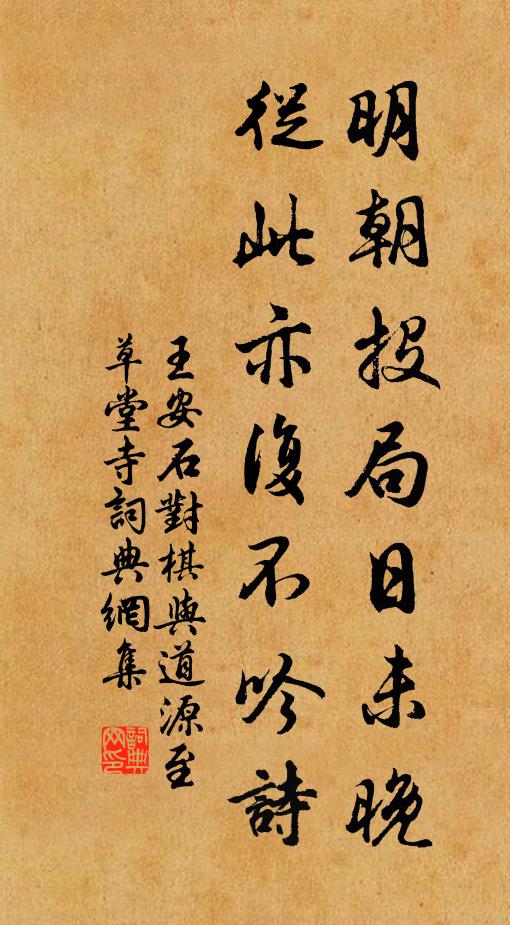 明朝投局日未晚
從此亦復不吟詩
王安石對棋與道源至
草堂寺詞典網集
詞典网印